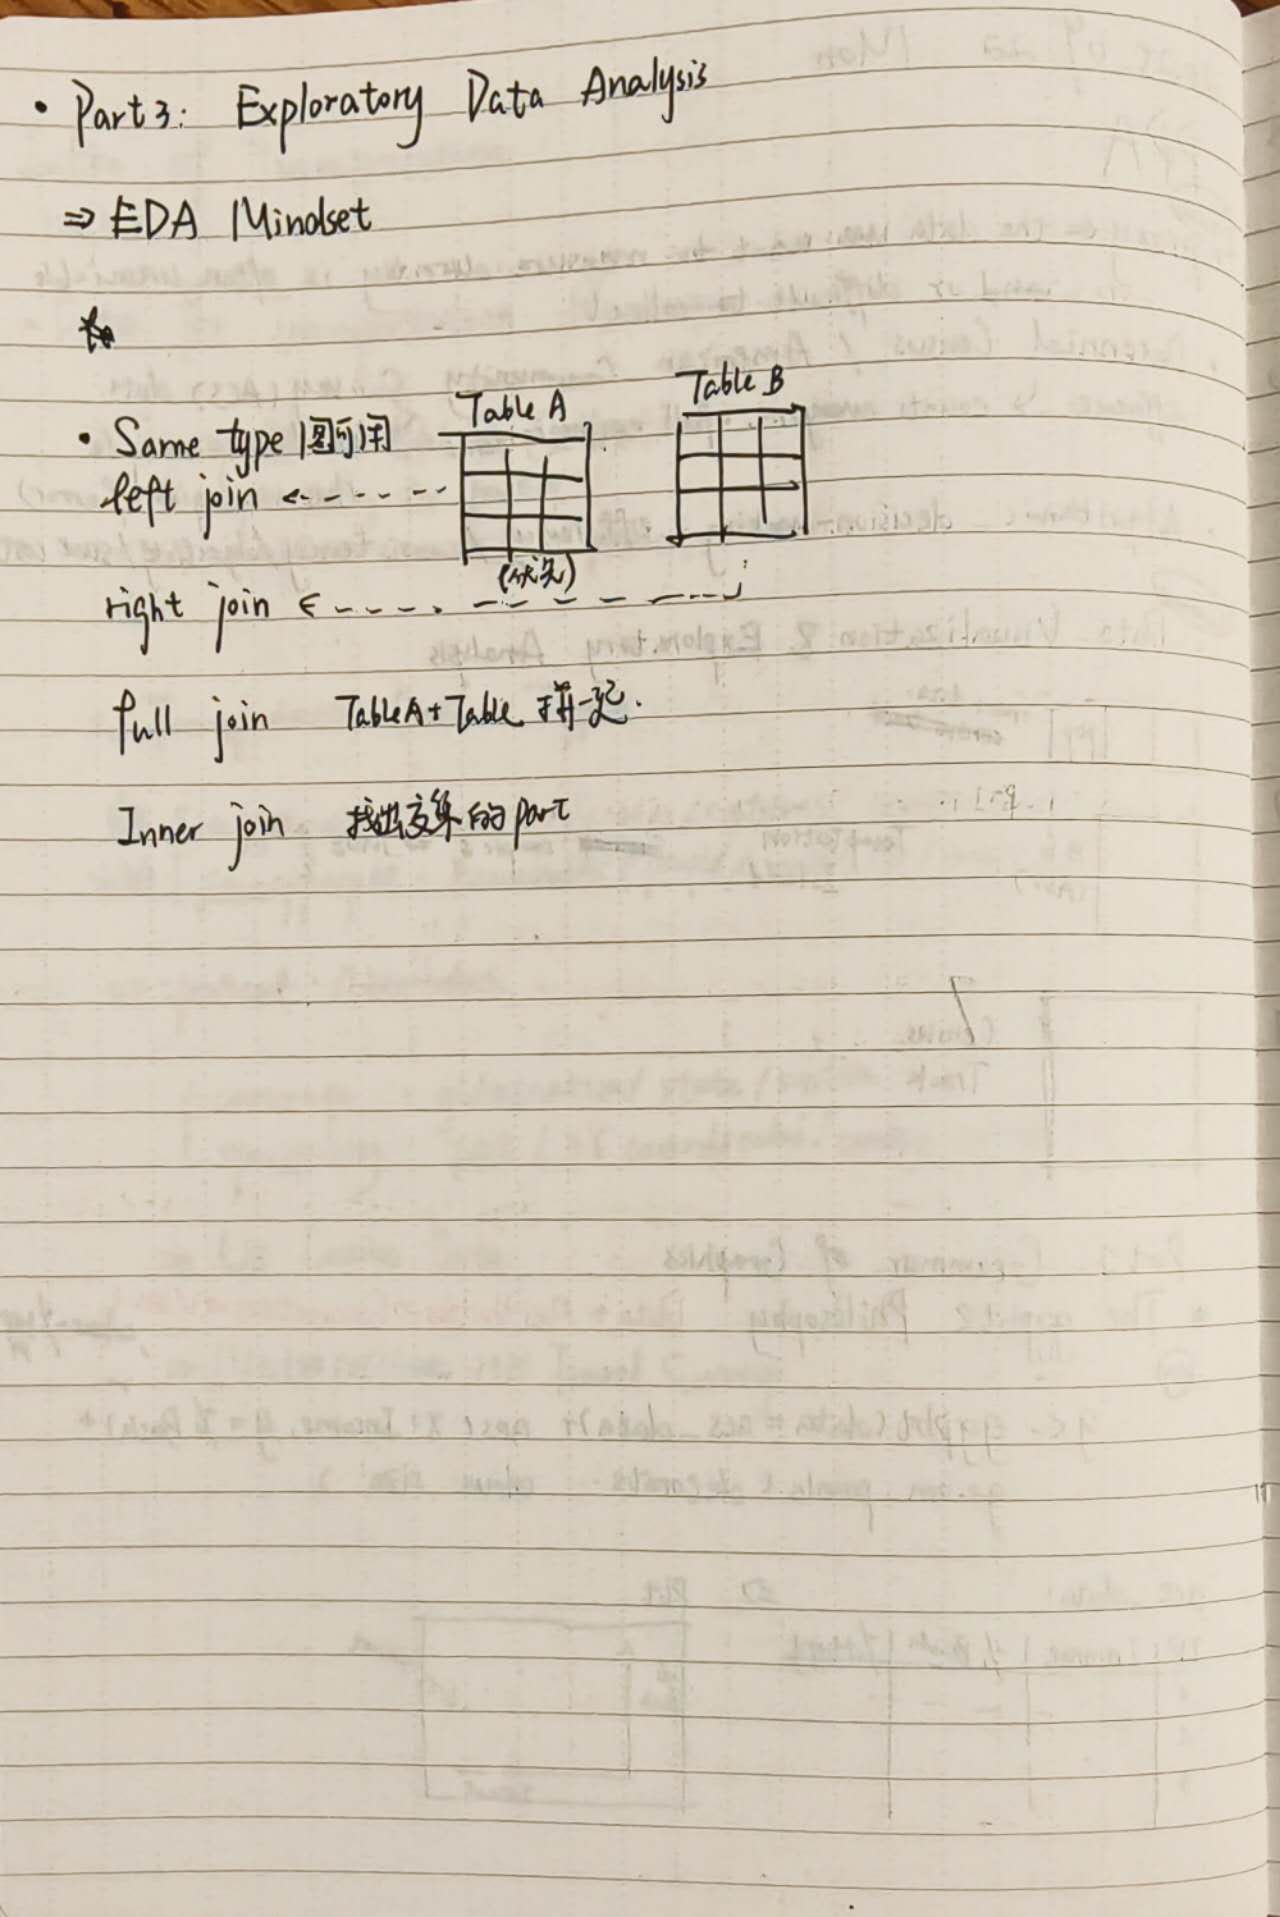 • Part 3: Exploratory Data Analysis
⇒ EDA Mindset
Table A
Table B
• Same type 图可用
left join
(优先)
right join
full join TableA+Table 拼一起.
Inner join 找出交集的part